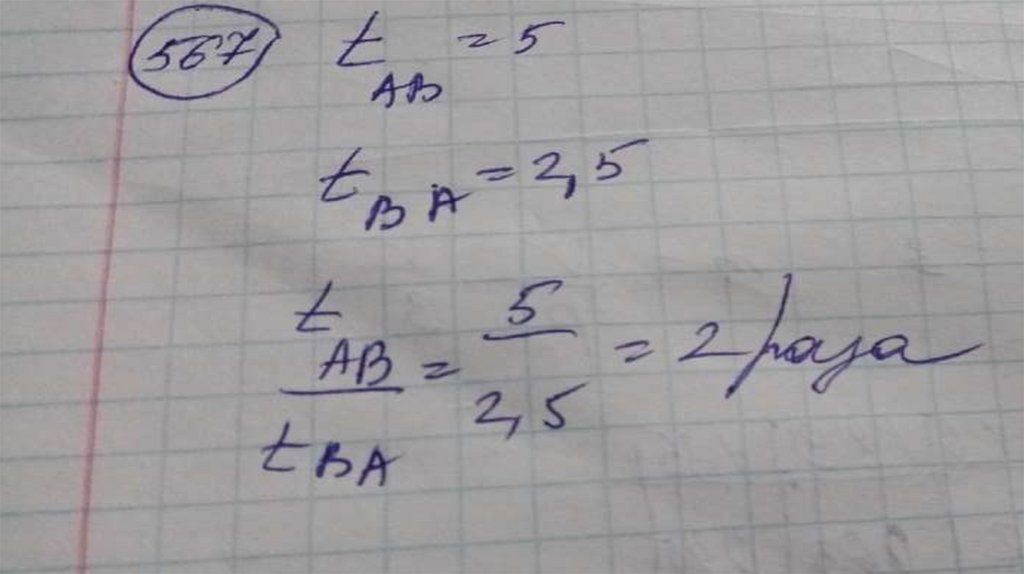 567 t AB = 5
t BA = 2,5
t AB / t BA = 5 / 2,5 = 2 раза